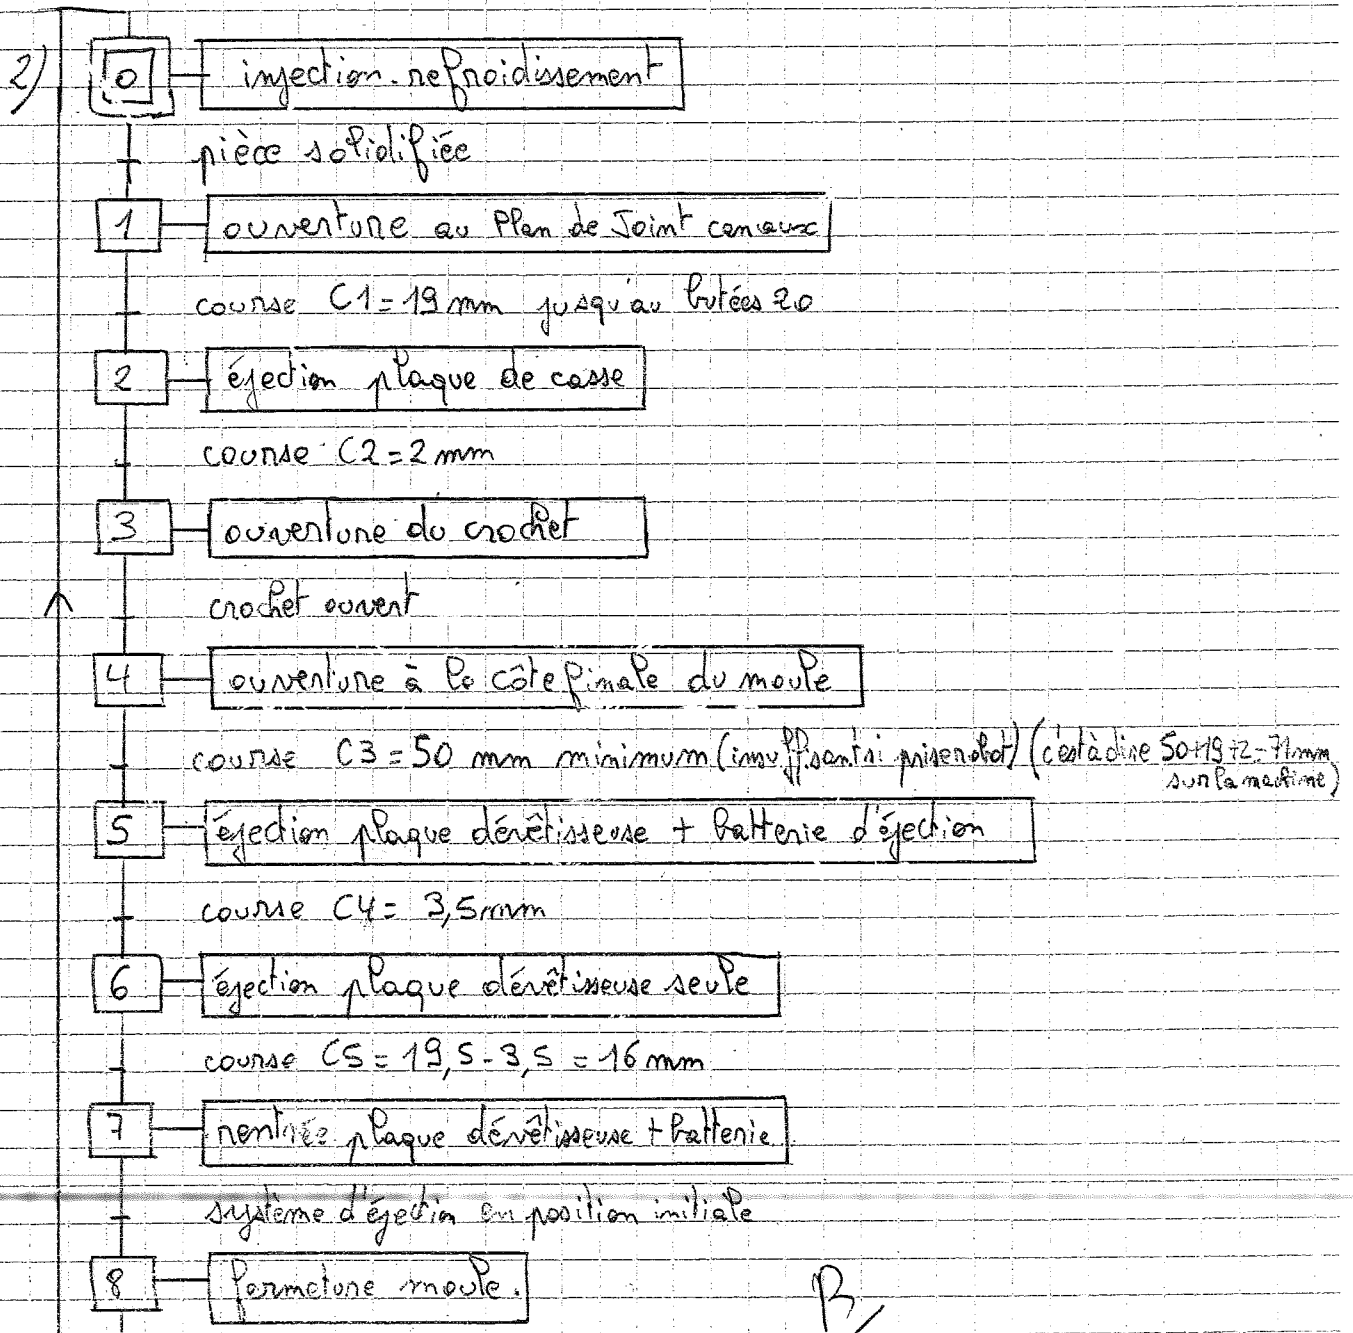 2)
0 injection. refroidissement
pièce solidifiée
1 ouverture au Plan de Joint canaux
course C1 = 19 mm jusqu'au butées 20
2 éjection plaque de casse
course C2 = 2 mm
3 ouverture du crochet
crochet ouvert
4 ouverture à la côte finale du moule
course C3 = 50 mm minimum (insuffisant si prise robot) (c'est à dire 50+19+2=71mm
sur la machine)
5 éjection plaque dévêtisseuse + batterie d'éjection
course C4 = 3,5mm
6 éjection plaque dévêtisseuse seule
course C5 = 19,5 - 3,5 = 16 mm
7 rentrée plaque dévêtisseuse + batterie
système d'éjection en position initiale
8 fermeture moule.